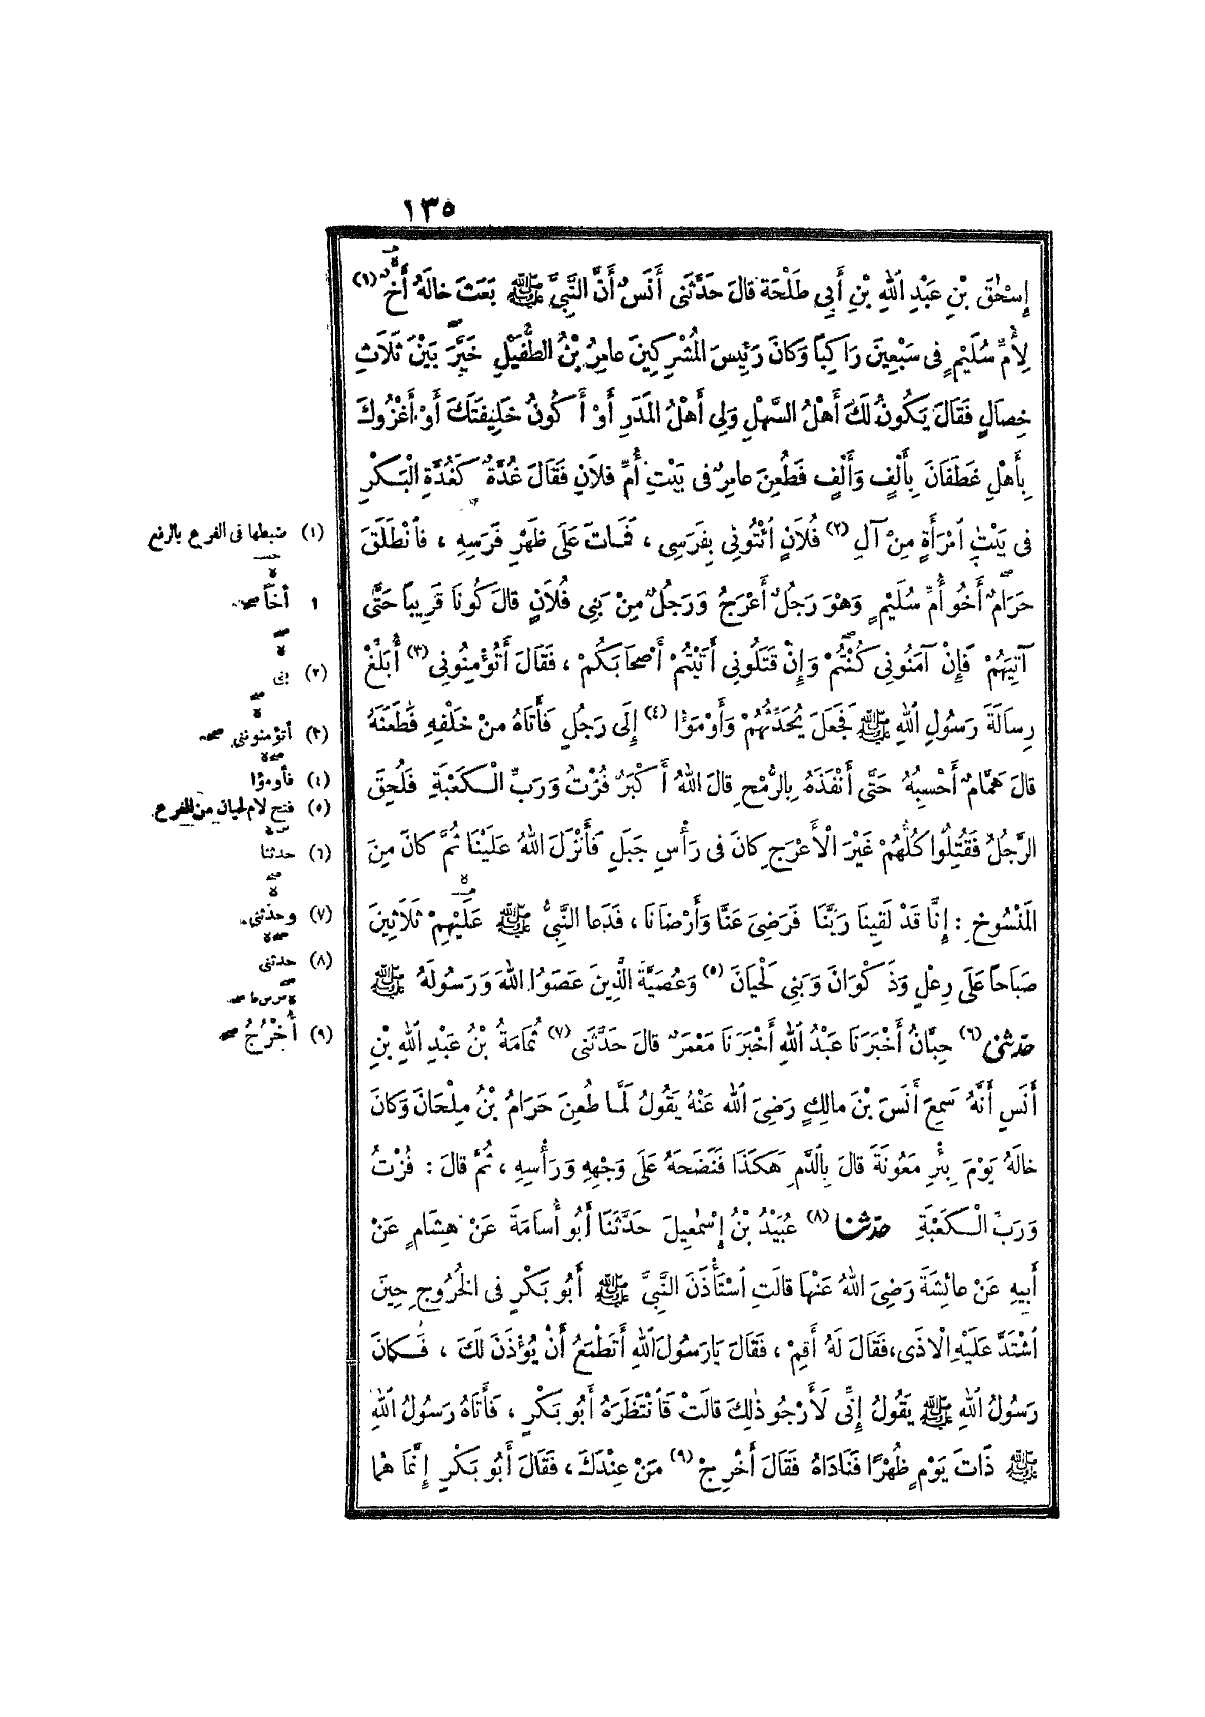 ١٣٥
إِسْحٰقَ بْنِ عَبْدِ اللهِ بْنِ أَبِي طَلْحَةَ قالَ حَدَّثَنِى أَنَسٌ أَنَّ النَّبِيَّ ﷺ بَعَثَ خالَهُ أَخٌ (١)
لِأُمِّ سُلَيْمٍ فى سَبْعِينَ رَاكِباً وَكانَ رَئِيسَ المُشْرِكِينَ عامِرُ بْنُ الطُّفَيْلِ خَيَّرَ بَيْنَ ثَلَاثِ
خِصَالٍ فَقَالَ يَكُونُ لَكَ أَهْلُ السَّهْلِ وَلِى أَهْلُ المَدَرِ أَوْ أَكُونُ خَلِيفَتَكَ أَوْ أَغْزُوكَ
بِأَهْلِ غَطَفَانَ بِأَلْفٍ وَأَلْفٍ فَطُعِنَ عامِرٌ فى بَيْتِ أُمِّ فلاَنٍ فَقَالَ غُدَّةٌ كَغُدَّةِ الْبَكْرِ
فى بَيْتِ اُمْرَأَةٍ مِنْ آلِ (٢) فُلاَنٍ ائْتُونِي بِفَرَسِى ، فَمَاتَ عَلَى ظَهْرِ فَرَسِهِ ، فَانْطَلَقَ
حَرَامٌ أَخُو أُمِّ سُلَيْمٍ وَهْوَ رَجُلٌ أَعْرَجُ وَرَجُلٌ مِنْ بَنِي فُلاَنٍ قالَ كُونَا قَرِيباً حَتَّى
آتِيَهُمْ فَإِنْ آمَنُونِى كُنْتُمْ وَإِنْ قَتَلُونِى أَتَيْتُمْ أَصْحَابَكُمْ ، فَقَالَ أَتُؤْمِنُونِى (٣) أُبَلِّغْ
رِسالَةَ رَسُولِ اللهِ ﷺ فَجَعَلَ يُحَدِّثُهُمْ وَأَوْمَؤُا (٤) إِلَى رَجُلٍ فَأَتَاهُ مِنْ خَلْفِهِ فَطَعَنَهُ
قالَ هَمَّامٌ أَحْسِبُهُ حَتَّى أَنْفَذَهُ بِالرُّمْحِ قالَ اللهُ أَكْبَرُ فُزْتُ وَرَبِّ الْكَعْبَةِ فَلُحِقَ
الرَّجُلُ فَقُتِلُوا كُلُّهُمْ غَيْرَ الْأَعْرَجِ كانَ فى رَأْسِ جَبَلٍ فَأَنْزَلَ اللهُ عَلَيْنَا ثُمَّ كانَ مِنَ
المَنْسُوخِ : إِنَّا قَدْ لَقِينَا رَبَّنَا فَرَضِىَ عَنَّا وَأَرْضَانَا ، فَدَعا النَّبِيُّ ﷺ عَلَيْهِمْ ثَلاَثِينَ
صَبَاحاً عَلَى رِعْلٍ وَذَكْوَانَ وَبَنِى لَحْيَانَ (٥) وَعُصَيَّةَ الَّذِينَ عَصَوُا اللهَ وَرَسُولَهُ ﷺ
حَدَّثَنِى (٦) حِبَّانُ أَخْبَرَنَا عَبْدُ اللهِ أَخْبَرَنَا مَعْمَرٌ قالَ حَدَّثَنِى (٧) ثُمَامَةُ بْنُ عَبْدِ اللهِ بْنِ
أَنَسٍ أَنَّهُ سَمِعَ أَنَسَ بْنَ مالِكٍ رَضِىَ اللهُ عَنْهُ يَقُولُ لَمَّا طُعِنَ حَرَامُ بْنُ مِلْحَانَ وَكانَ
خالَهُ يَوْمَ بِئْرِ مَعُونَةَ قالَ بِالدَّمِ هٰكَذَا فَنَضَحَهُ عَلَى وَجْهِهِ وَرَأْسِهِ ، ثُمَّ قالَ : فُزْتُ
وَرَبِّ الْكَعْبَةِ حَدَّثَنَا (٨) عُبَيْدُ بْنُ إِسْمٰعِيلَ حَدَّثَنَا أَبُو أُسَامَةَ عَنْ هِشَامٍ عَنْ
أَبِيهِ عَنْ عائِشَةَ رَضِىَ اللهُ عَنْهَا قالَتِ اسْتَأْذَنَ النَّبِيَّ ﷺ أَبُو بَكْرٍ فى الخُرُوجِ حِينَ
اشْتَدَّ عَلَيْهِ الْاذَى، فَقَالَ لَهُ أَقِمْ ، فَقَالَ يَا رَسُولَ اللهِ أَتَطْمَعُ أَنْ يُؤْذَنَ لَكَ ، فَكانَ
رَسُولُ اللهِ ﷺ يَقُولُ إِنِّى لَأَرْجُو ذٰلِكَ قالَتْ فَانْتَظَرَهُ أَبُو بَكْرٍ ، فَأَتَاهُ رَسُولُ اللهِ
ﷺ ذَاتَ يَوْمٍ ظُهْرًا فَنَادَاهُ فَقَالَ أَخْرِجْ (٩) مَنْ عِنْدَكَ ، فَقَالَ أَبُو بَكْرٍ إِنَّمَا هُمَا
(١) ضبطها فى الفرع بالرفع
١ أخاً صح
(٢) بنى
(٣) أتؤمنوننى صح
(٤) فأومؤا
(٥) فتح لام لحيان من الفرع
(٦) حدثنا
(٧) وحدثنى
(٨) حدثنى
(٩) أُخْرُجْ صح